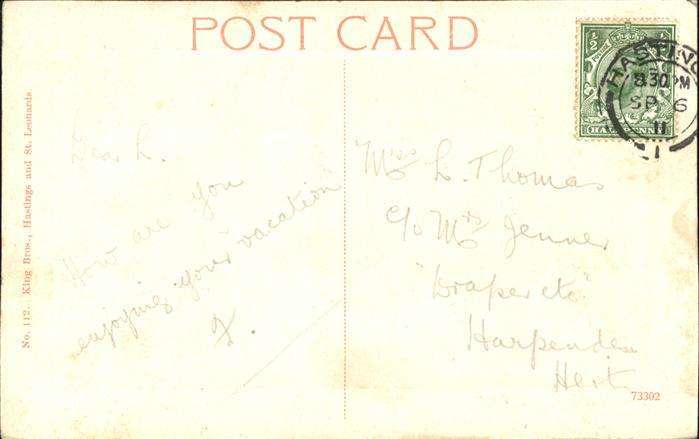 POST CARD
½ ½
HALFPENNY
HASTING
8.30 PM
SP 6
11
1
No. 112. King Bros., Hastings and St. Leonards
Dear L.
How are you
enjoying your "vacation"
Miss L. Thomas
c/o Mrs Jenner
"Draper etc"
Harpenden
Hert
73302